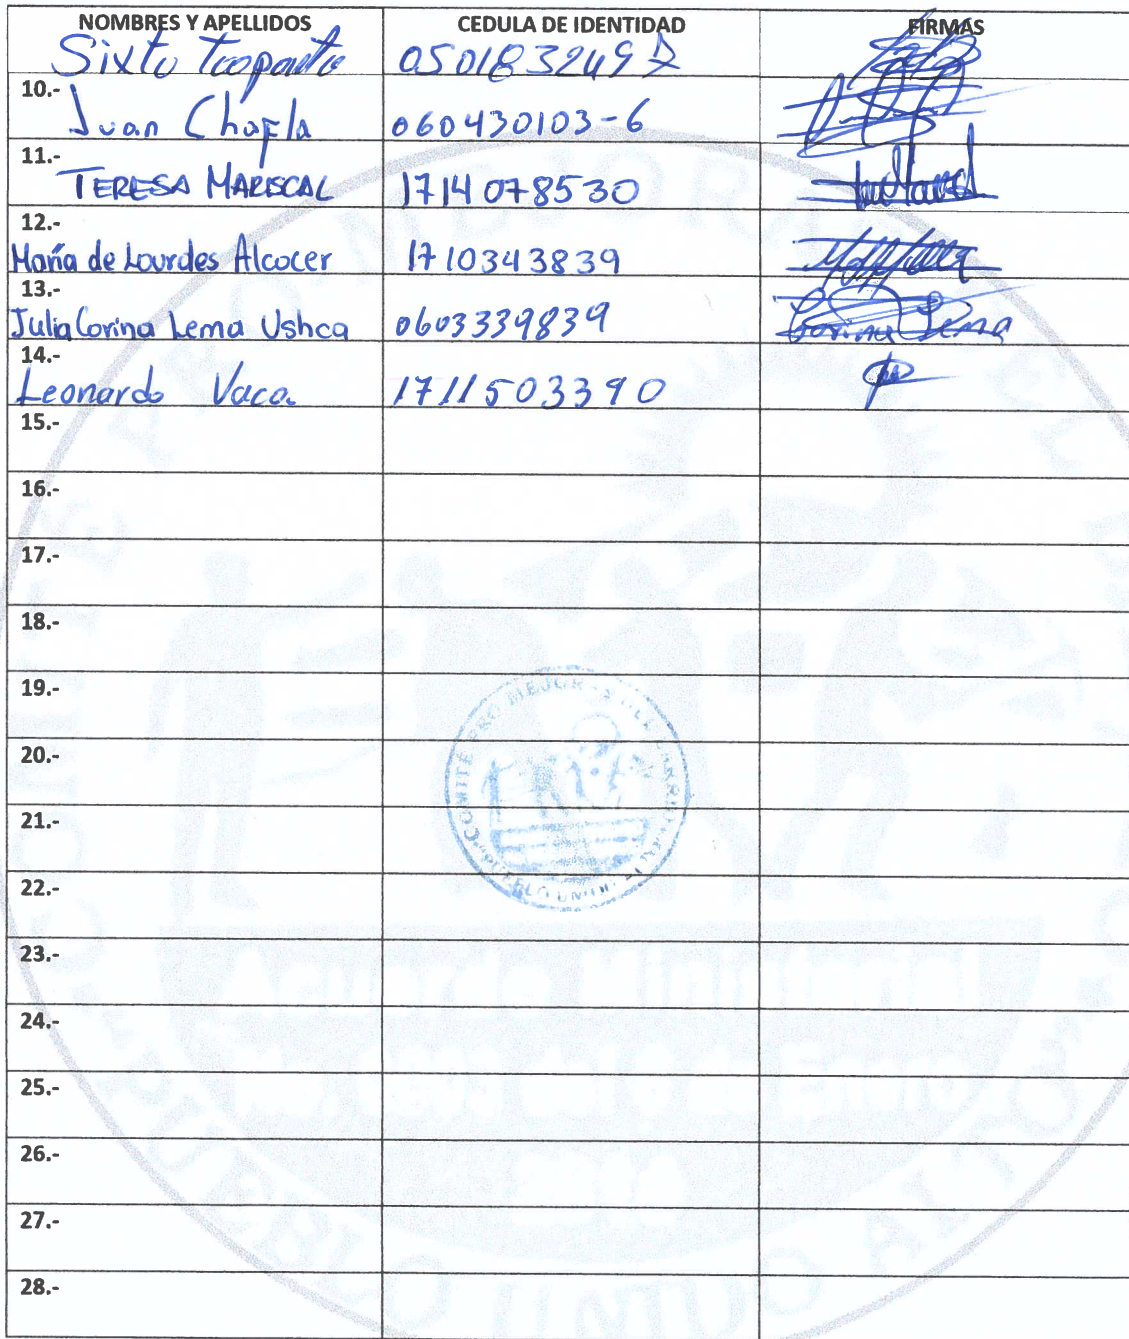 NOMBRES Y APELLIDOS CEDULA DE IDENTIDAD FIRMAS
Sixto 0501832497
10.-
Juan Chafla 060430103-6
11.-
TERESA MARISCAL 1714078530
12.-
María de Lourdes Alcocer 1710343839
13.-
Julia Corina Lema Ushca 0603339839 Corina Lema
14.-
Leonardo Vaca 1711503390
15.-
16.-
17.-
18.-
19.-
20.-
21.-
22.-
23.-
24.-
25.-
26.-
27.-
28.-
COMITÉ PRO MEJORAS DEL BARRIO
PUEBLO UNIDO